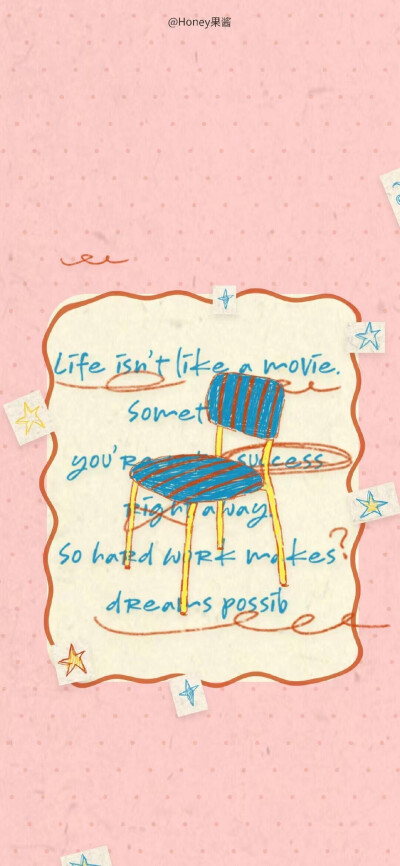 @Honey果酱
Life isn't like a movie.
Somet
you're success
right away.
So hard work makes?
dreams possib